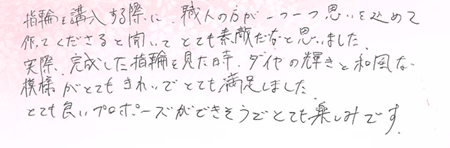 指輪を購入する際に、職人の方が一つ一つ思いを込めて
作ってくださると聞いてとても素敵だなと思いました。
実際、完成した指輪を見た時、ダイヤの輝きと和風な
模様がとてもきれいでとても満足しました。
とても良いプロポーズができそうでとても楽しみです。